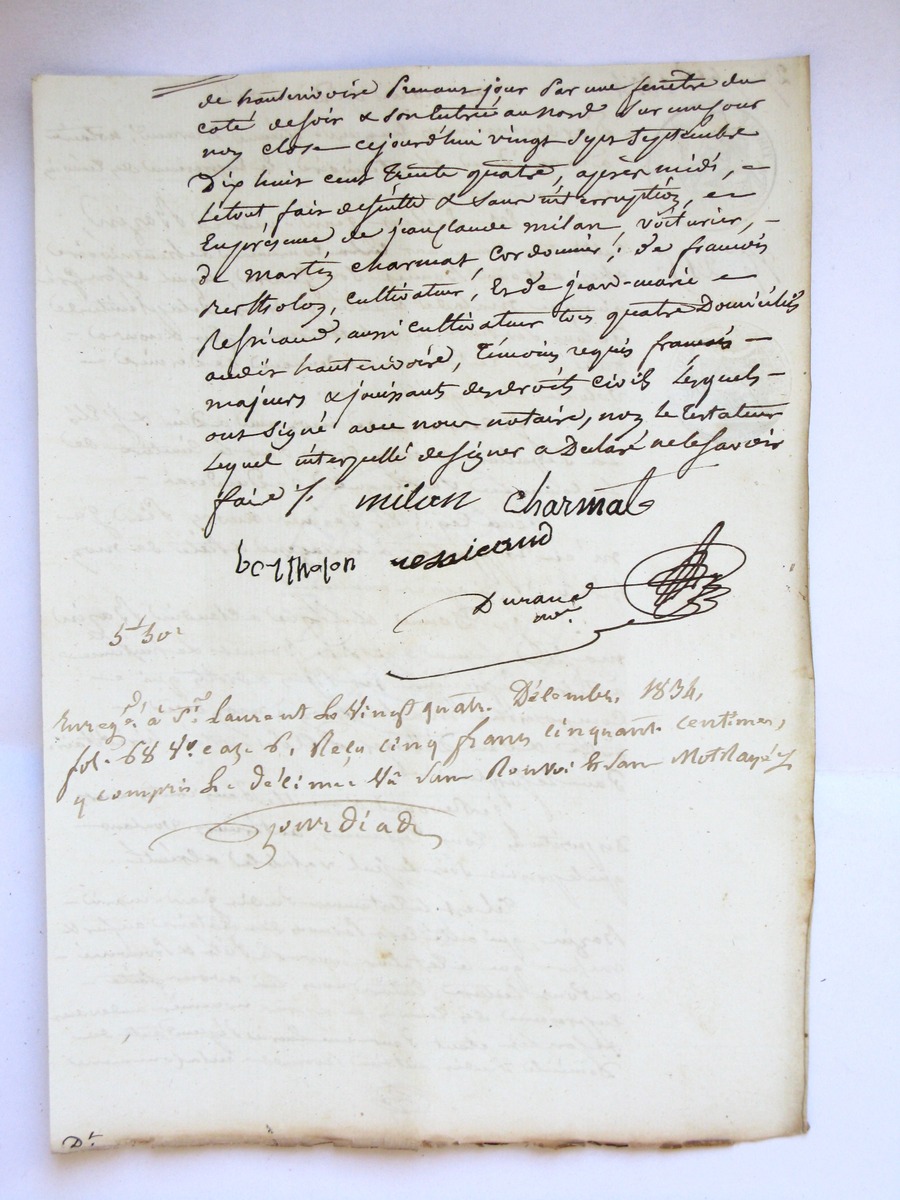 de hauterivoire Prenant jour par une fenêtre du
coté de soir & son Entrée au nord sur une cour
non close cejourd'hui vingt Sept Septembre
Dix huit cent Trente quatre, après midi, =
Letout fait desuitte & Sans interruption, en
En présence de jeanclaude milan, voiturier, -
de martin charmat, Cordonnier, ; de francois
Bertholon, cultivateur, Et de jean-marie =
Ressicaud, aussi cultivateur tous quatre Domiciliés
audit hauterivoire, Témoins requis francais -
majeurs & jouissants des droits civils Lesquels -
ont Signé avec nous notaire, non le Testateur
Lequel interpellé designer a Declaré ne le Savoir
faire ./. milan charmat
bertholon ressicaud
Durand
nre.
5f 50c
Enregré à St. Laurent le Vingt quatre Décembre 1834,
fol. 68 Vo. case 6, Reçu cinq francs cinquante centimes,
y compris le décime Vu sans Renvoi & sans Mot Rayé